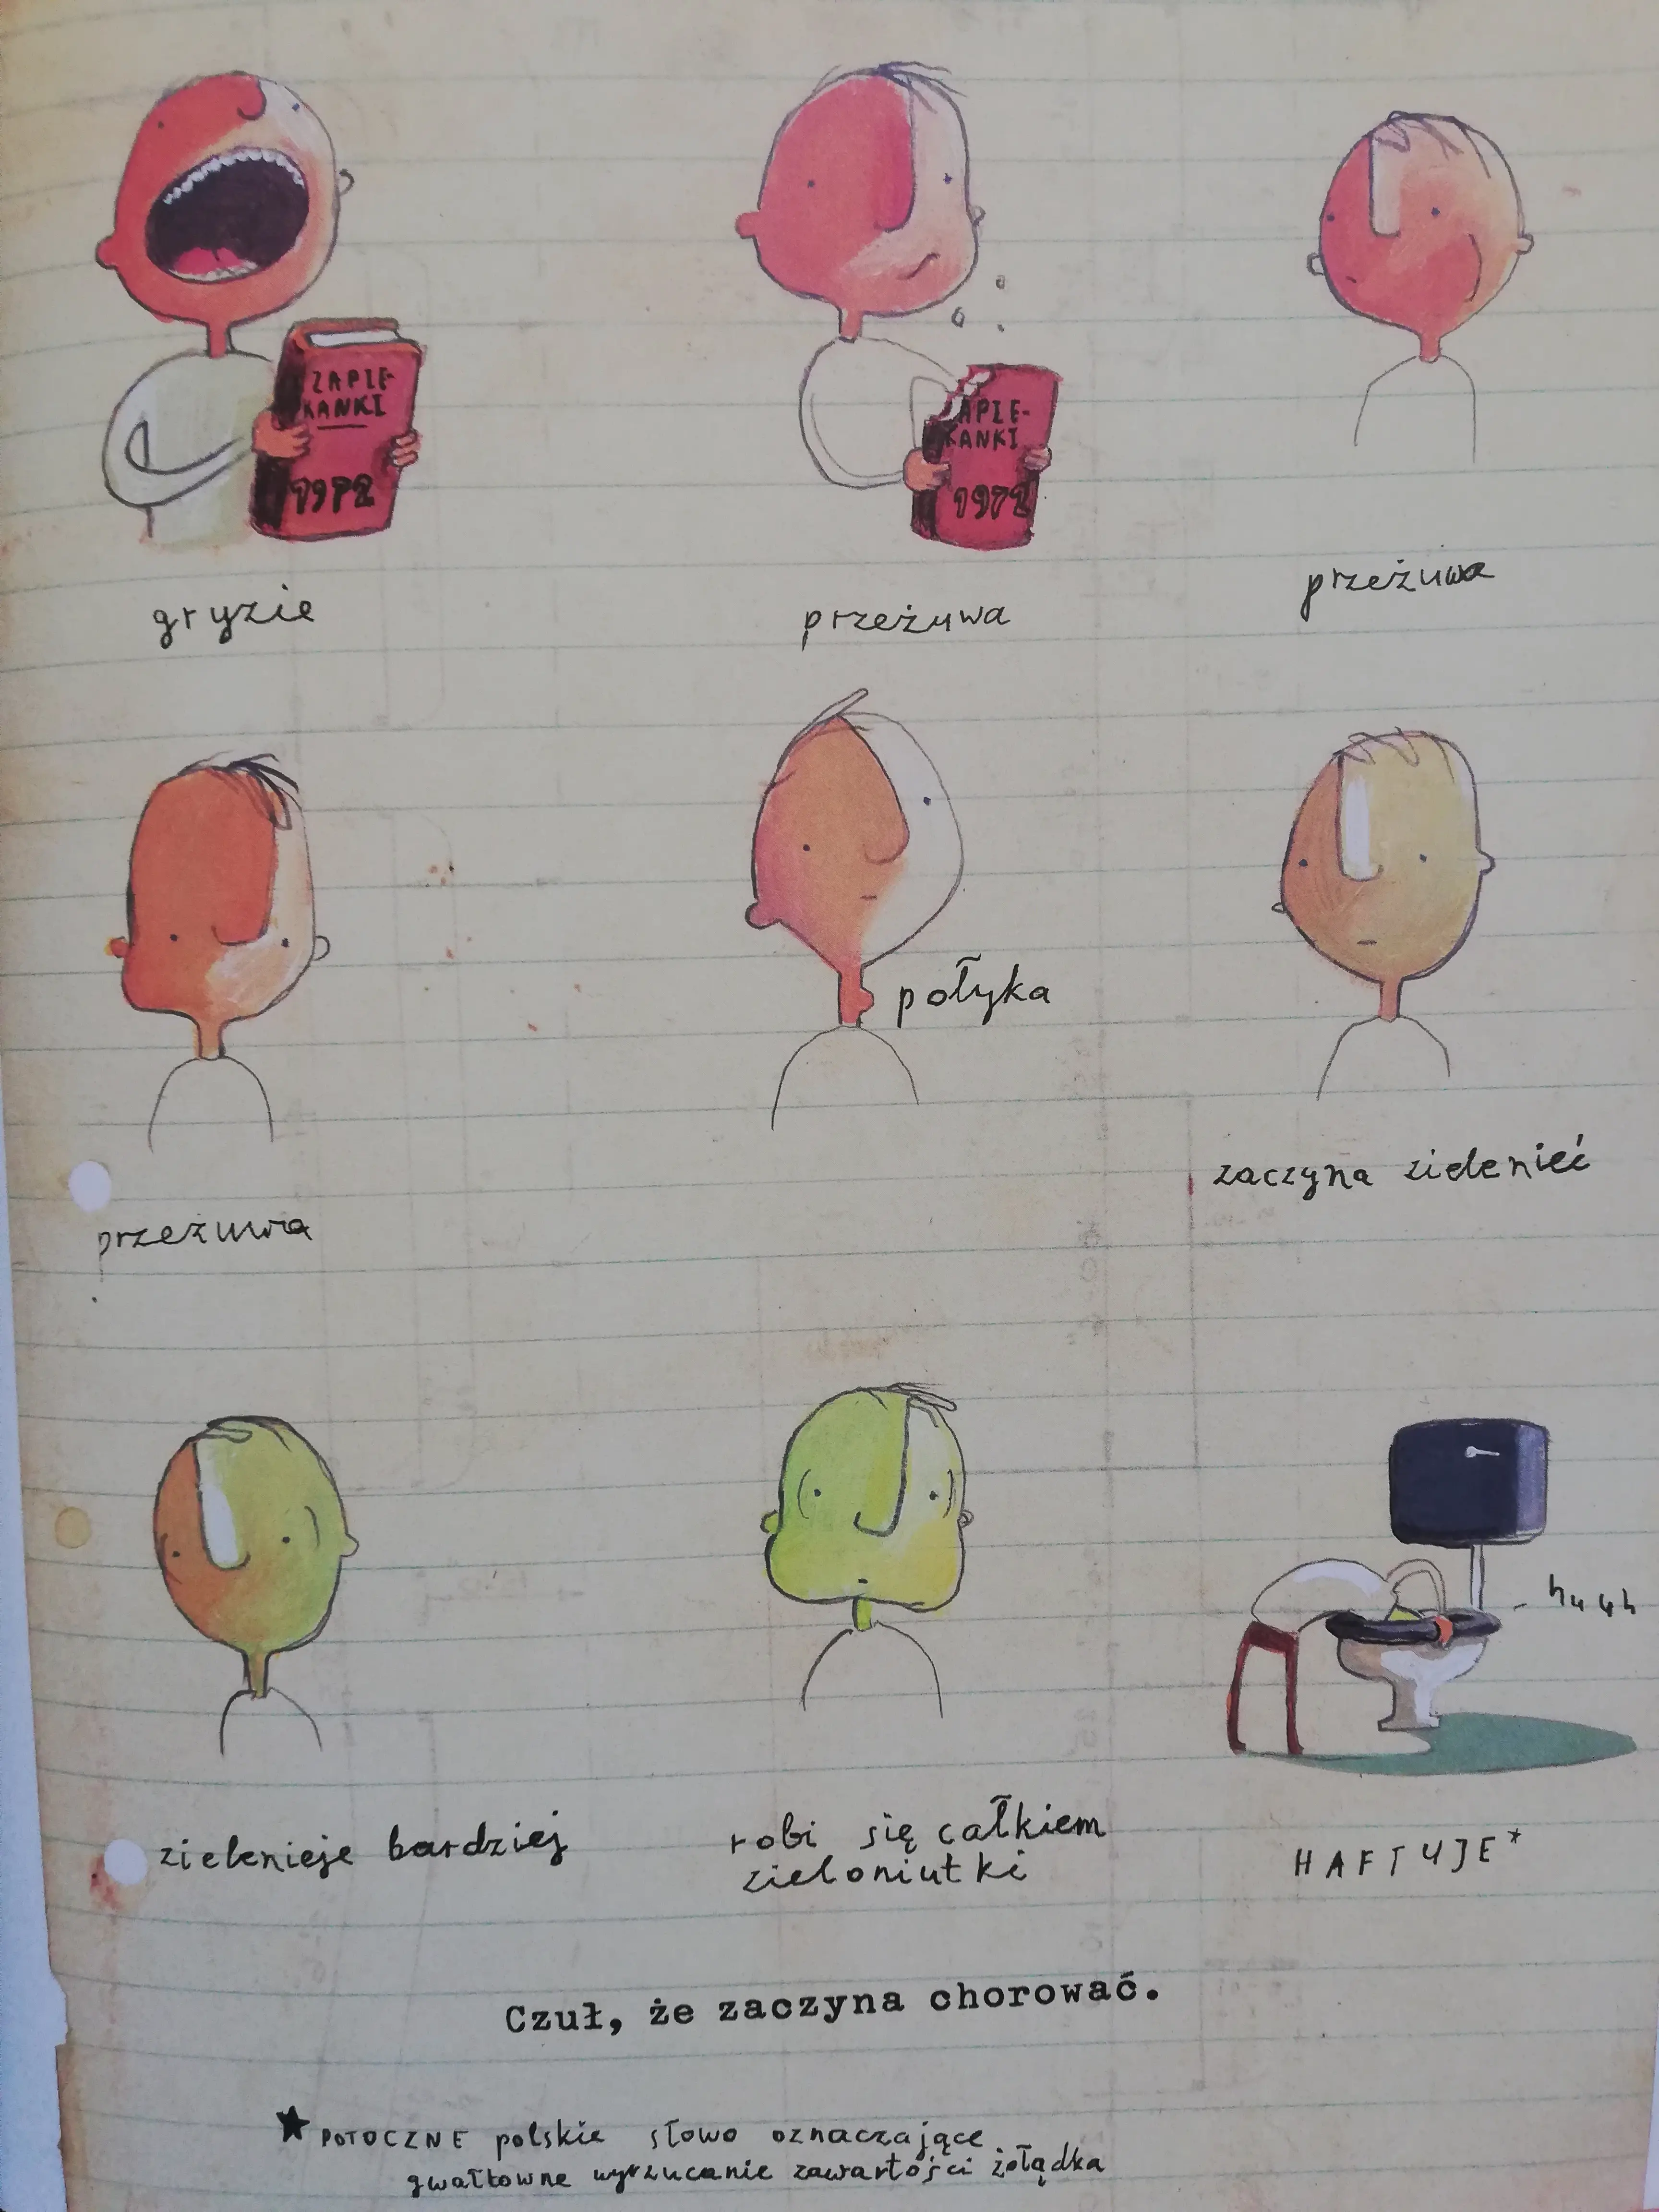 ZAPIE-
KANKI
1972
APIE-
KANKI
1972
gryzie
przeżuwa
przeżuwa
przeżuwa
połyka
zaczyna zielenieć
huuh
zielenieje bardziej
robi się całkiem
zieloniutki
HAFTUJE*
Czuł, że zaczyna chorować.
★ POTOCZNE polskie słowo oznaczające
gwałtowne wyrzucanie zawartości żołądka